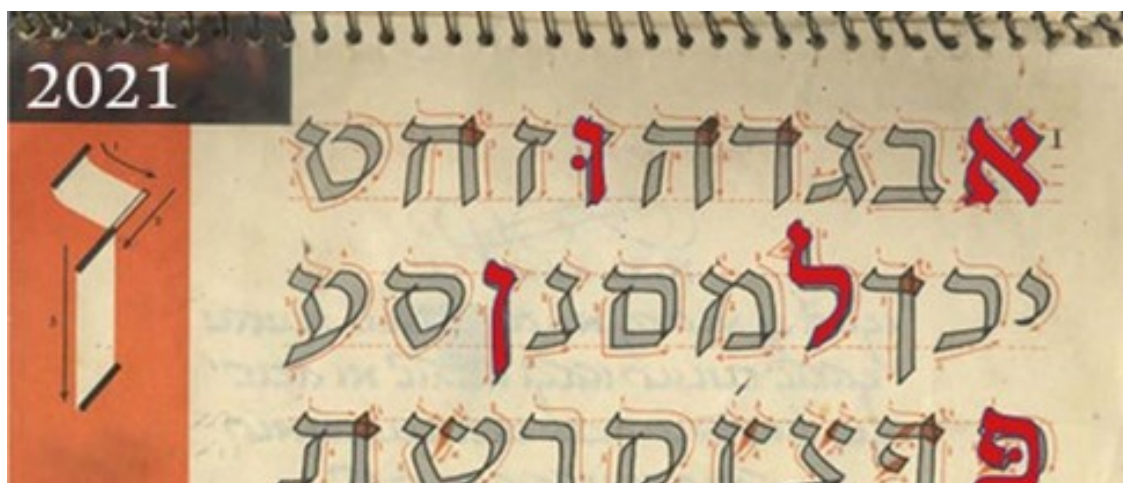 2021
אבגדהוּזחט
יכךלמםנןסע
פּףצץקרשת